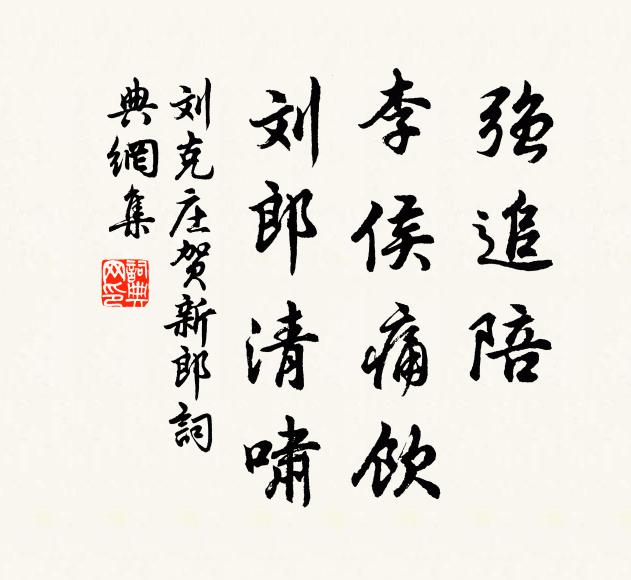 强追陪
李侯痛饮
刘郎清啸
刘克庄贺新郎詞
典網集
詞典网印